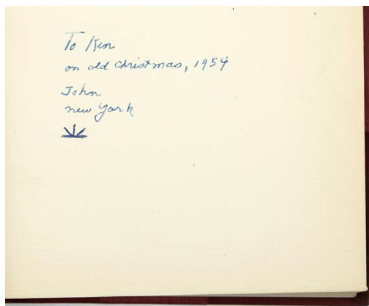 To Ken
on old Christmas, 1954
John
new York